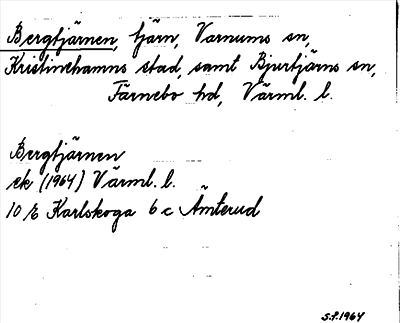 Bergtjärnen, tjärn, Varnums sn,
Kristinehamns stad, samt Bjurtjärns sn,
Färnebo hd, Värml. l.
Bergtjärnen
ek (1964) Värml. l.
10 E Karlskoga 6 c Ämterud
S.P. 1964